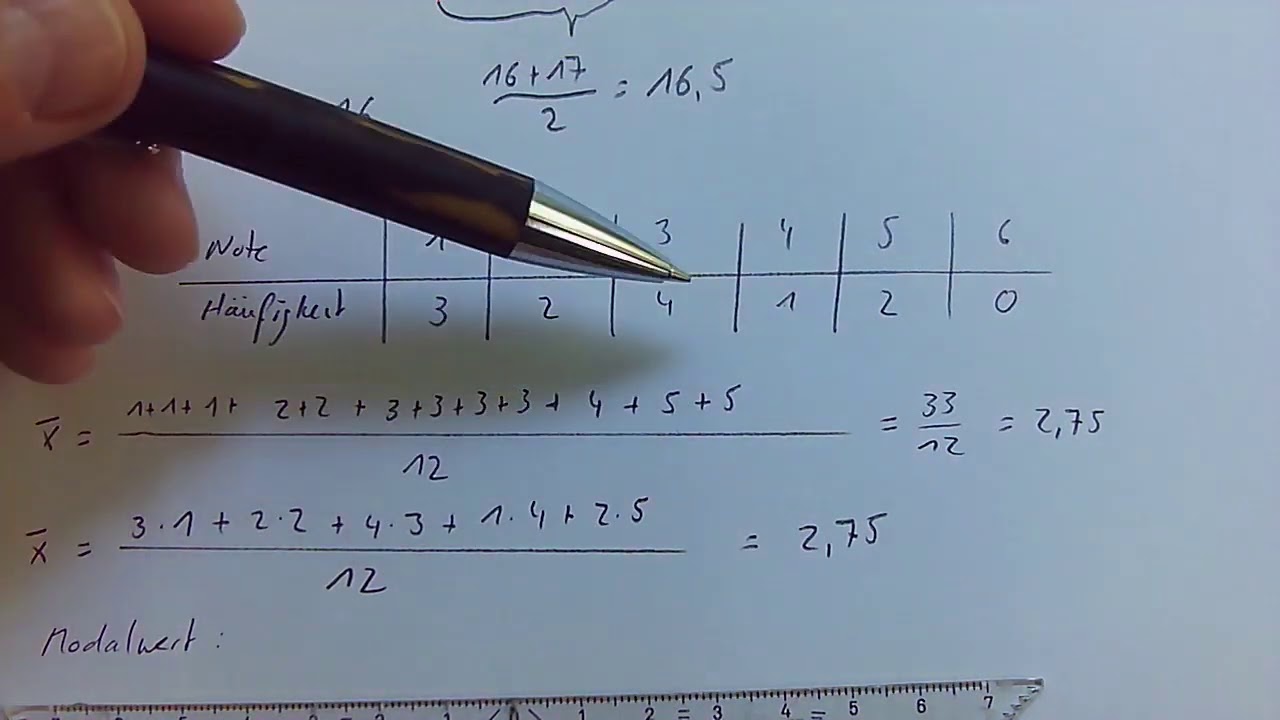 16+17
2
= 16,5
16
Note 1 3 4 5 6
Häufigkeit 3 2 4 1 2 0
x̄ = 1+1+1+ 2+2 + 3+3+3+3+ 4 + 5+5
12
= 33
12
= 2,75
x̄ = 3·1 + 2·2 + 4·3 + 1·4 + 2·5
12
= 2,75
Modalwert :
1 2 3 4 5 6 7